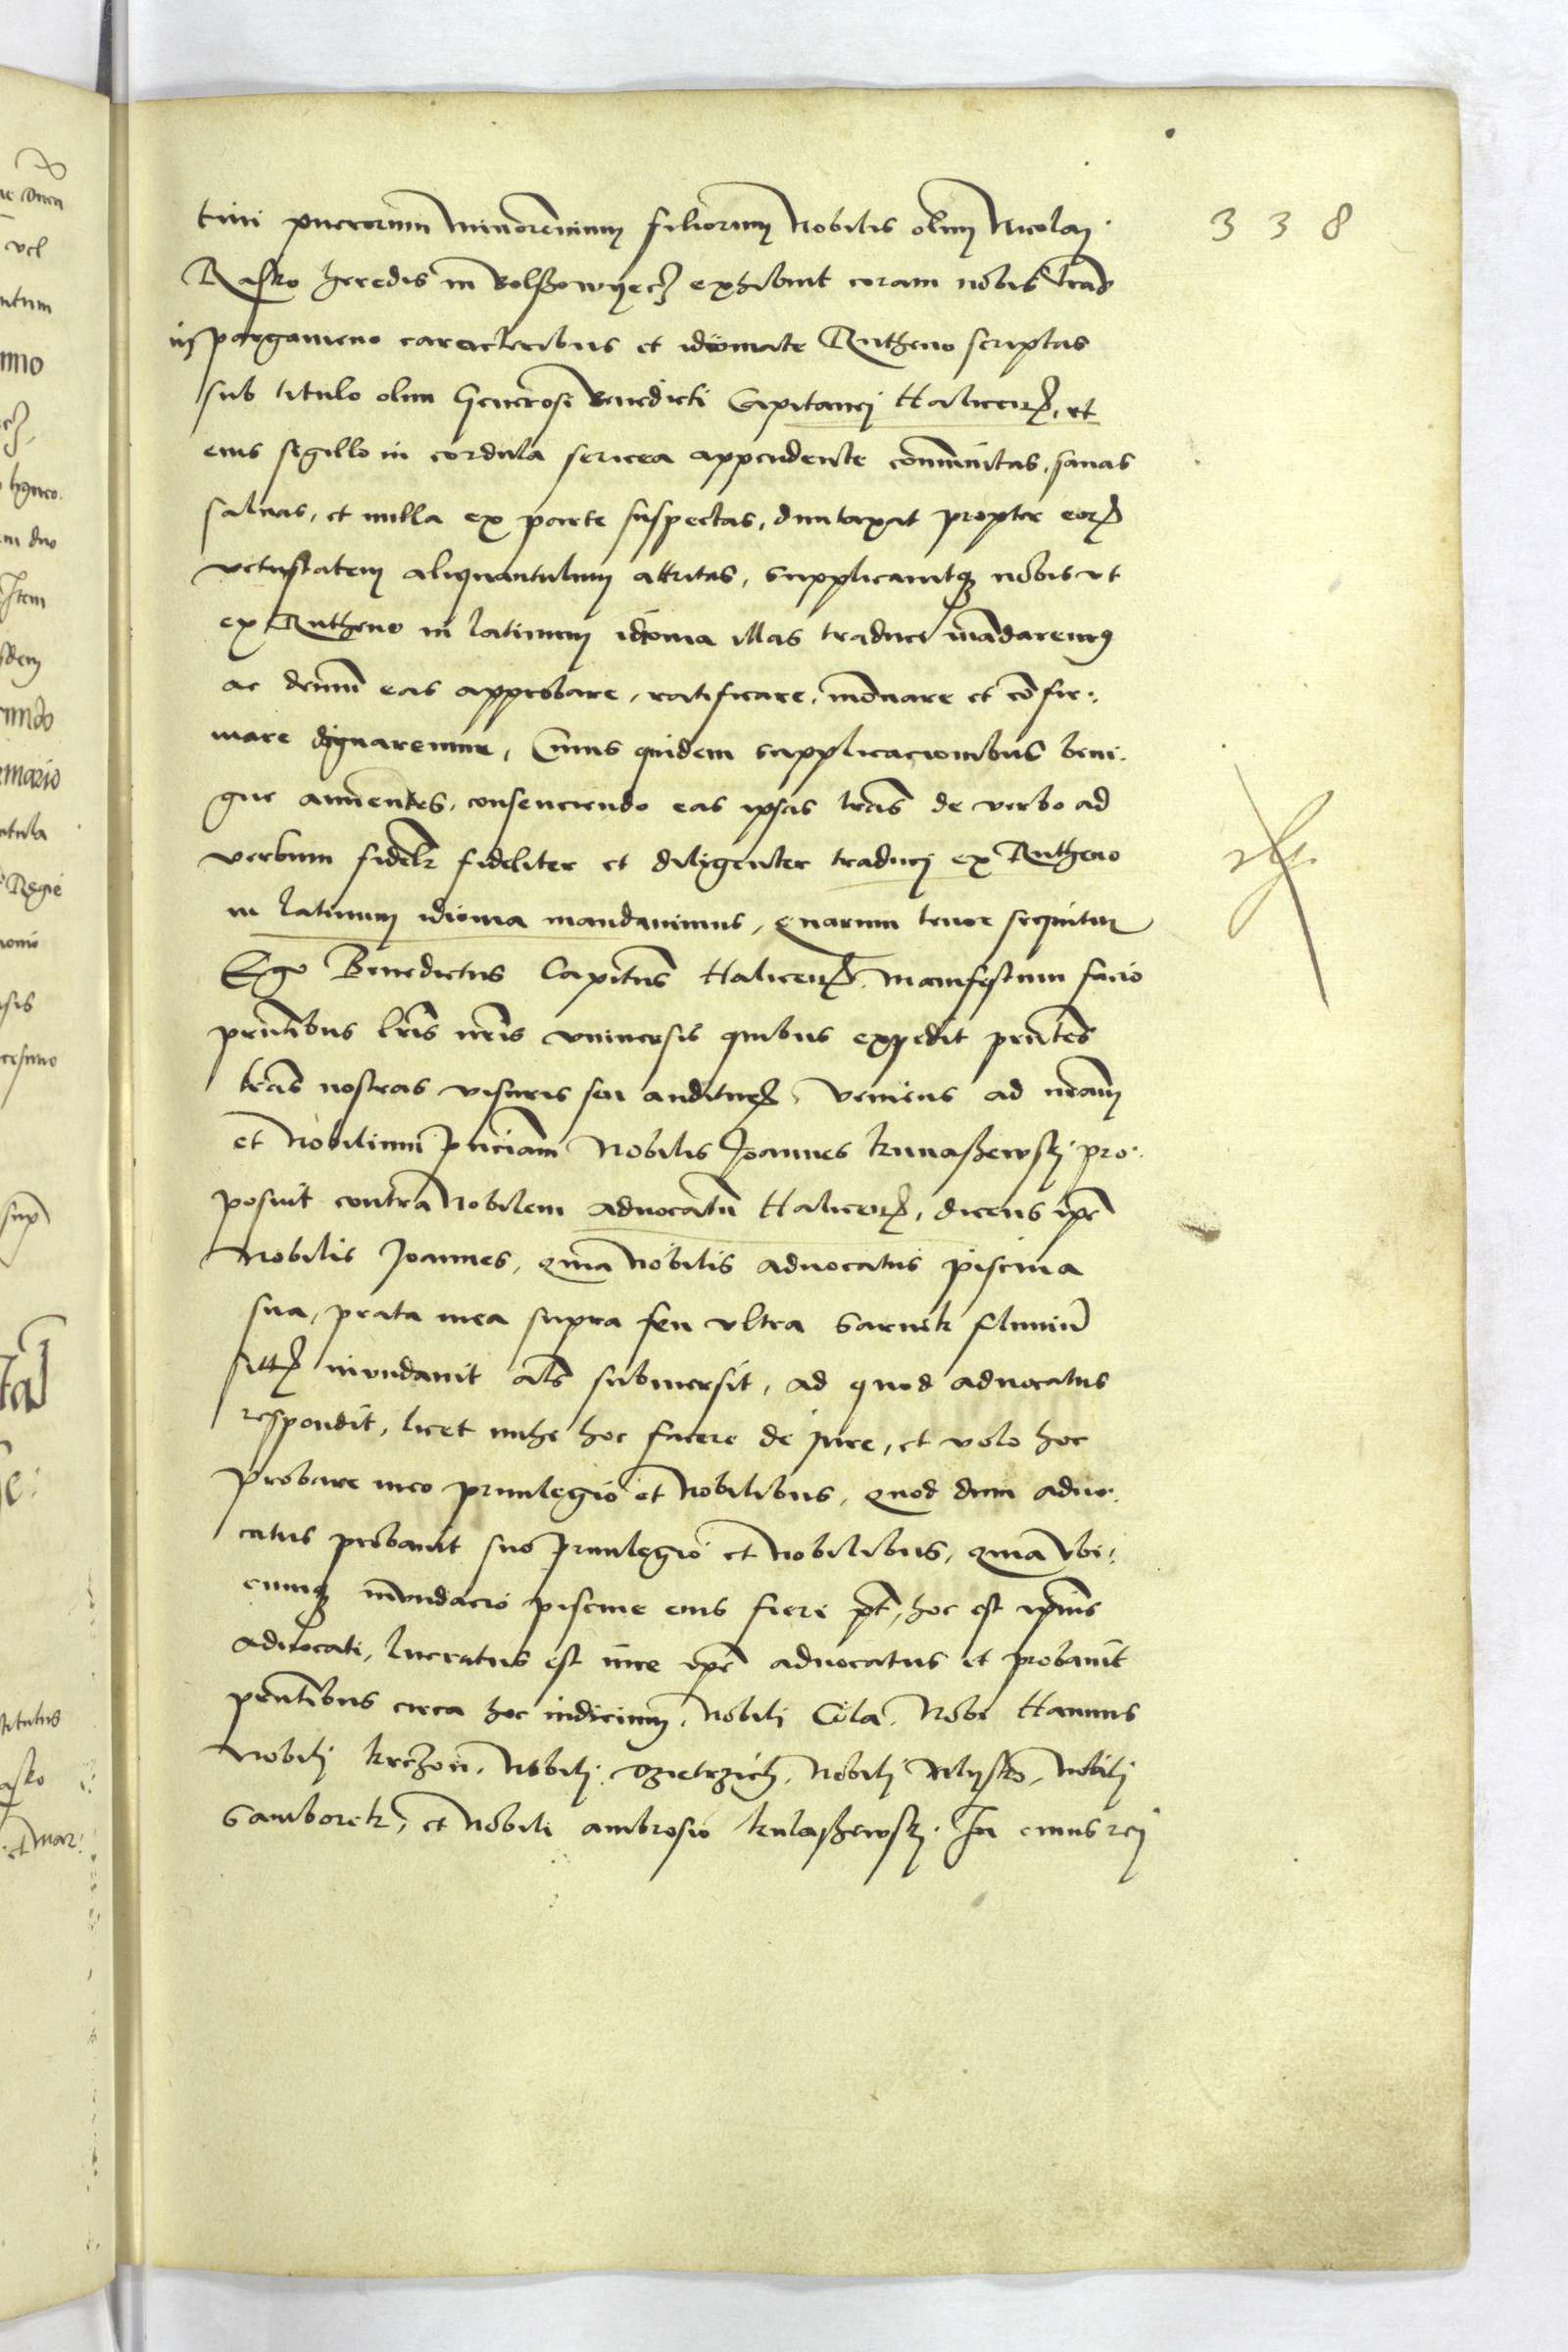 338
tini puerorum minorennium filiorum Nobilis olim Nicolaj
Rasko heredis in Bolszowyecz exhibuit coram nobis lras
in pargameno caracteribus et idiomate Rutheno scriptas
sub titulo olim Generosi Benedicti Capitanej Halicen, et
eius sigillo in cordula sericea appendente communitas, sanas
saluas, et nulla ex parte suspectas, duntaxat propter eor
vetustatem aliquantulum attritas, supplicauitq nobis vt
ex Rutheno in latinum idioma illas traduci mandaremus
ac demum eas approbare, ratificare, innouare et confir:
mare dignaremur, Cuius quidem supplicacionibus beni:
gne annentes, consenciendo eas ipsas lras de verbo ad
verbum fidelr fideliter et diligenter traducj ex Rutheno
in latinum idioma mandauimus, quarum tenor sequitur
Ego Benedictus Capitneus Halicen. Manifestum facio
prntibus lris nris vniuersis quibus expedit prntes
lras nostras visuris seu auditur, veniens ad nram
et nobilium prnciam Nobilis Joannes kunaszewskj pro:
posuit contra Nobilem aduocatum Halicen, dicens ipe
Nobilis Joannes, quia Nobilis aduocatus piscina
sua, prata mea supra seu vltra Sarnek fluuium
sitt inundauit als submersit, ad quod aduocatus
respondit, licet mihi hoc facere de jure, et volo hoc
probare meo priuilegio et Nobilibus, quod dum aduo:
catus probauit suo priuilegio et nobilibus, quia vbi:
cumq inundacio piscine eius fieri pt, hoc est ipius
aduocati, lucratus est iure ipe aduocatus et probauit
prntibus circa hoc iudicium, Nobili Cola, Nobi Hannus
Nobilj krczon, Nobilj dzietrzich, Nobilj Nobilj
Samborek, et Nobili ambrosio kulaszewskj. In cuius rej